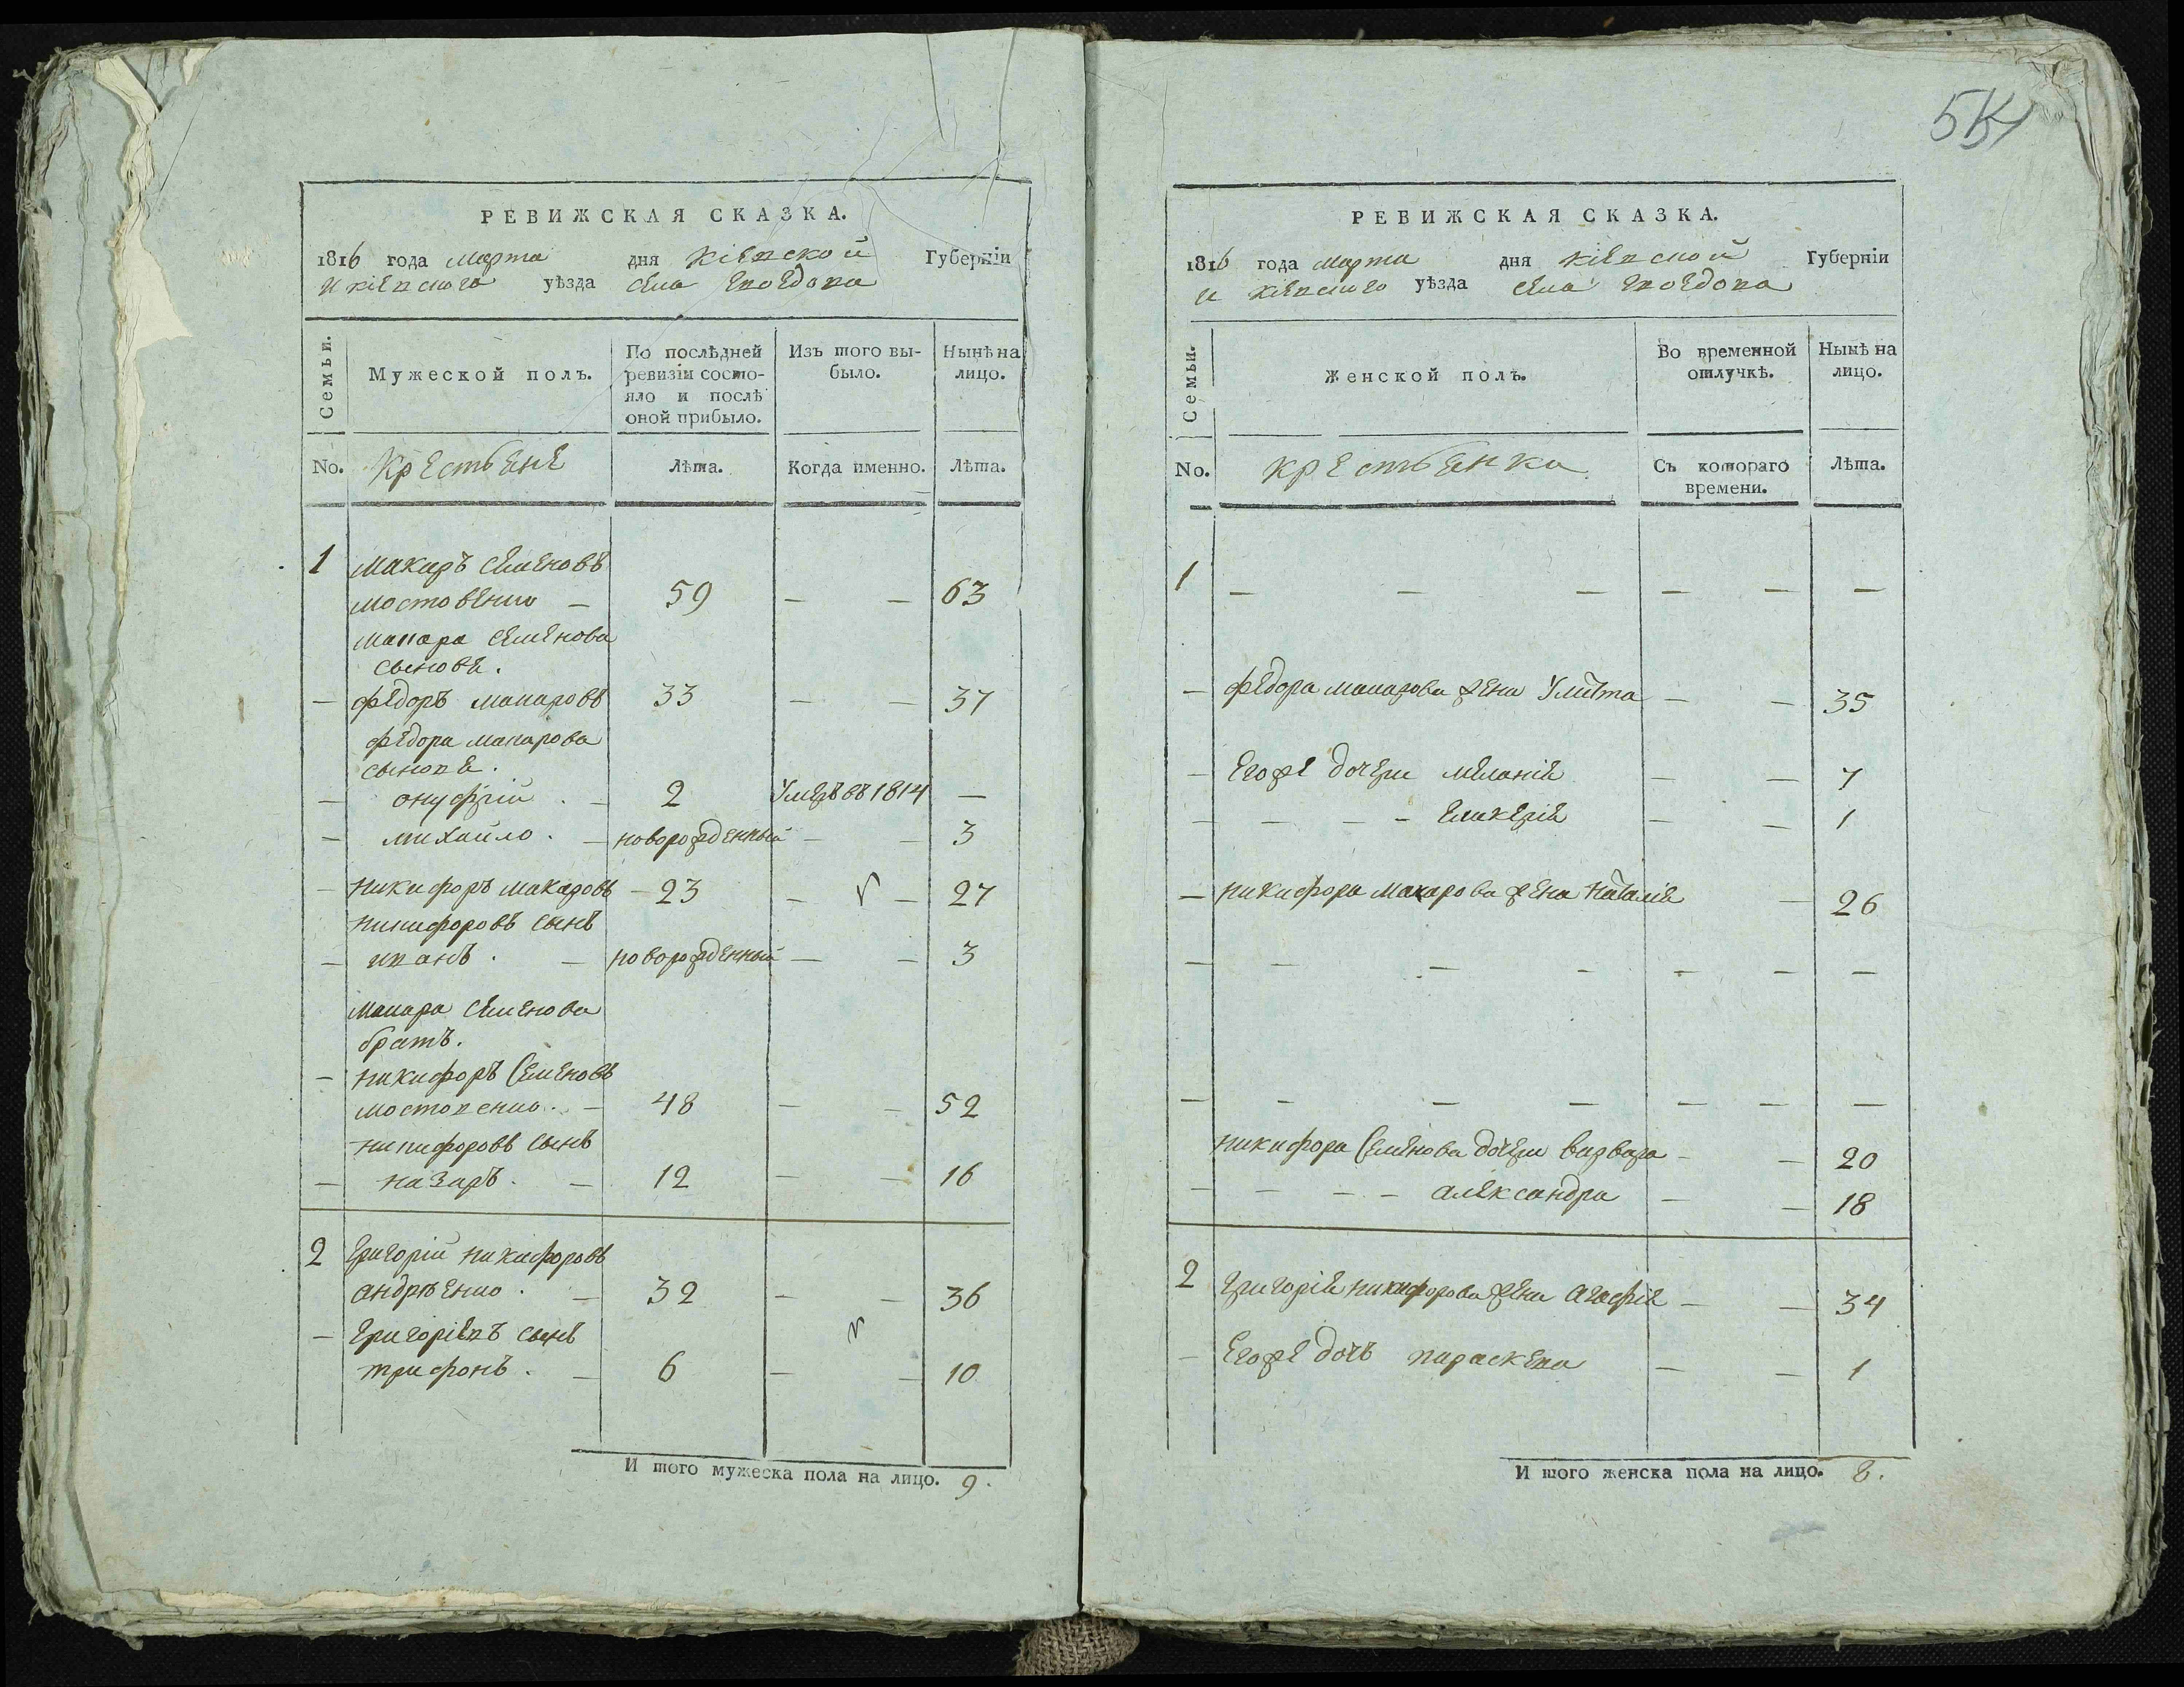 РЕВИЖСКАЯ СКАЗКА.
1816 года марта дня Кіевской Губерніи
и кіевского уѣзда села Гвоздова
Семьи.
Мужеской полъ.
По послѣдней ревизіи состояло и послѣ оной прибыло.
Изъ того выбыло.
Нынѣ на лицо.
No. Крестьяне Лѣта. Когда именно. Лѣта.
1 Макаръ Семеновъ
мостовенко — 59 — — 63
Макара Семенова
сыновя.
— федоръ макаровъ 33 — — 37
федора макарова
сыновя.
— онуфрій . — 2 Умеръ въ 1814 —
— михайло . — новорожденный — — 3
— никифоръ макаровъ — 23 — — 27
никифоровъ сынъ
— иванъ . — новорожденный — — 3
макара Семенова
братъ.
— никифоръ Семеновъ
мостовенко . — 48 — — 52
никифоровъ сынъ
— назаръ . — 12 — — 16
2 григорій никифоровъ
андрѣенко . — 32 — — 36
— григоріевъ сынъ
трифонъ . — 6 — — 10
И того мужеска пола на лицо. 9.
РЕВИЖСКАЯ СКАЗКА.
1816 года марта дня кіевской Губерніи
и кіевского уѣзда села Гвоздова
Семьи.
Женской полъ.
Во временной отлучкѣ.
Нынѣ на лицо.
No. крестьянки Съ котораго времени. Лѣта.
1 — — — — — —
— федора макарова жена Улита — — 35
— Егоже дочери меланія — — 7
— — — — гликерія — — 1
— никифора макарова жена наталія — 26
— — — — — — —
— — — — — — —
никифора Семенова дочери варвара — — 20
— — — — александра — — 18
2 григорія никифорова жена агафія — — 34
— Егоже дочь параскева — — 1
И того женска пола на лицо. 8.